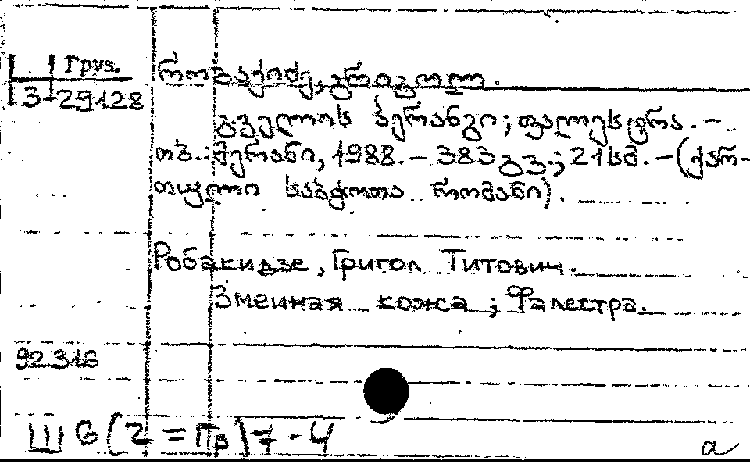 Груз.
3-29128
რობაქიძე, გრიგოლ.
გველის პერანგი; ფალესტრა. –
თბ.: მერანი, 1988. – 383 გვ.; 21 სმ. – (ქარ-
თული საბჭოთა რომანი).
Робакидзе, Григол Титович.
Змеиная кожа ; Фалестра.
92.316
Ш 6(2=Гр)7-4
а